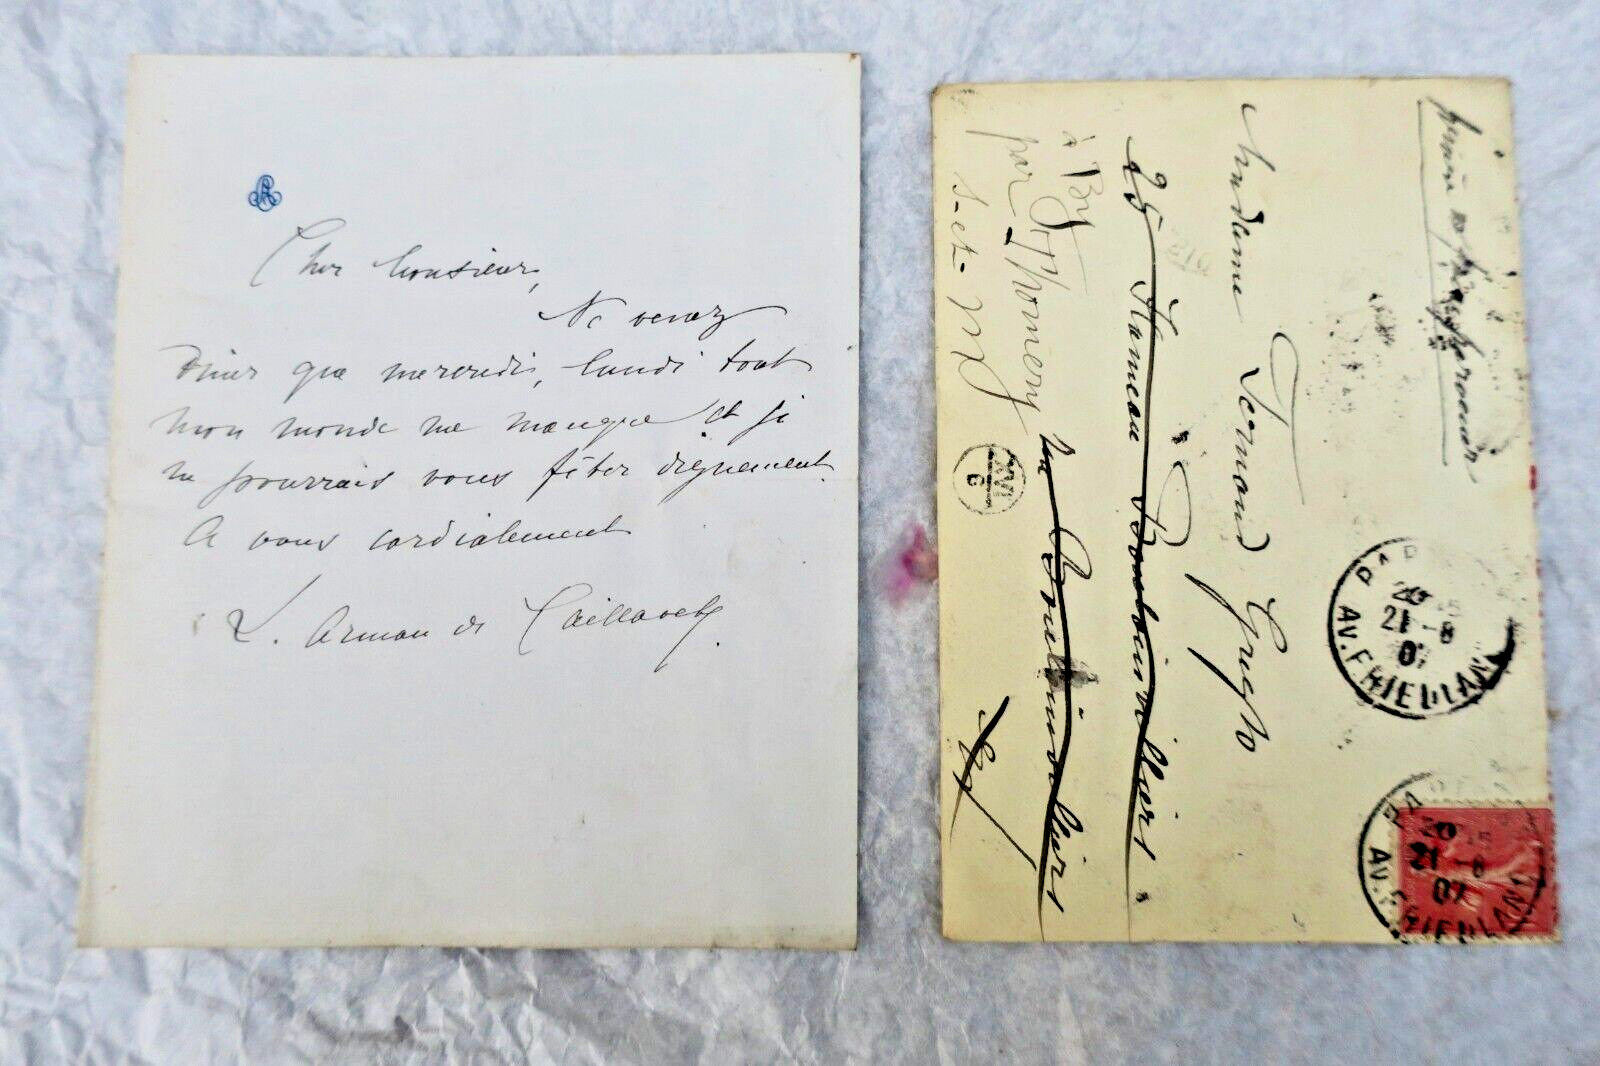 Cher Monsieur,
Ne venez
Diner que mercredi, lundi tout
mon monde me manque et je
ne pourrais vous fêter dignement.
A vous cordialement
L. Arman de Caillavet
prière
Madame Fernand Gregh
25 Hameau Boulainvilliers
Boulainvilliers
à By
par Thomery
S.-et-M
PAR
20
21 - 8
07
AV. FRIEDLAND
PA
20
21 - 8
07
AV. FRIEDLAND